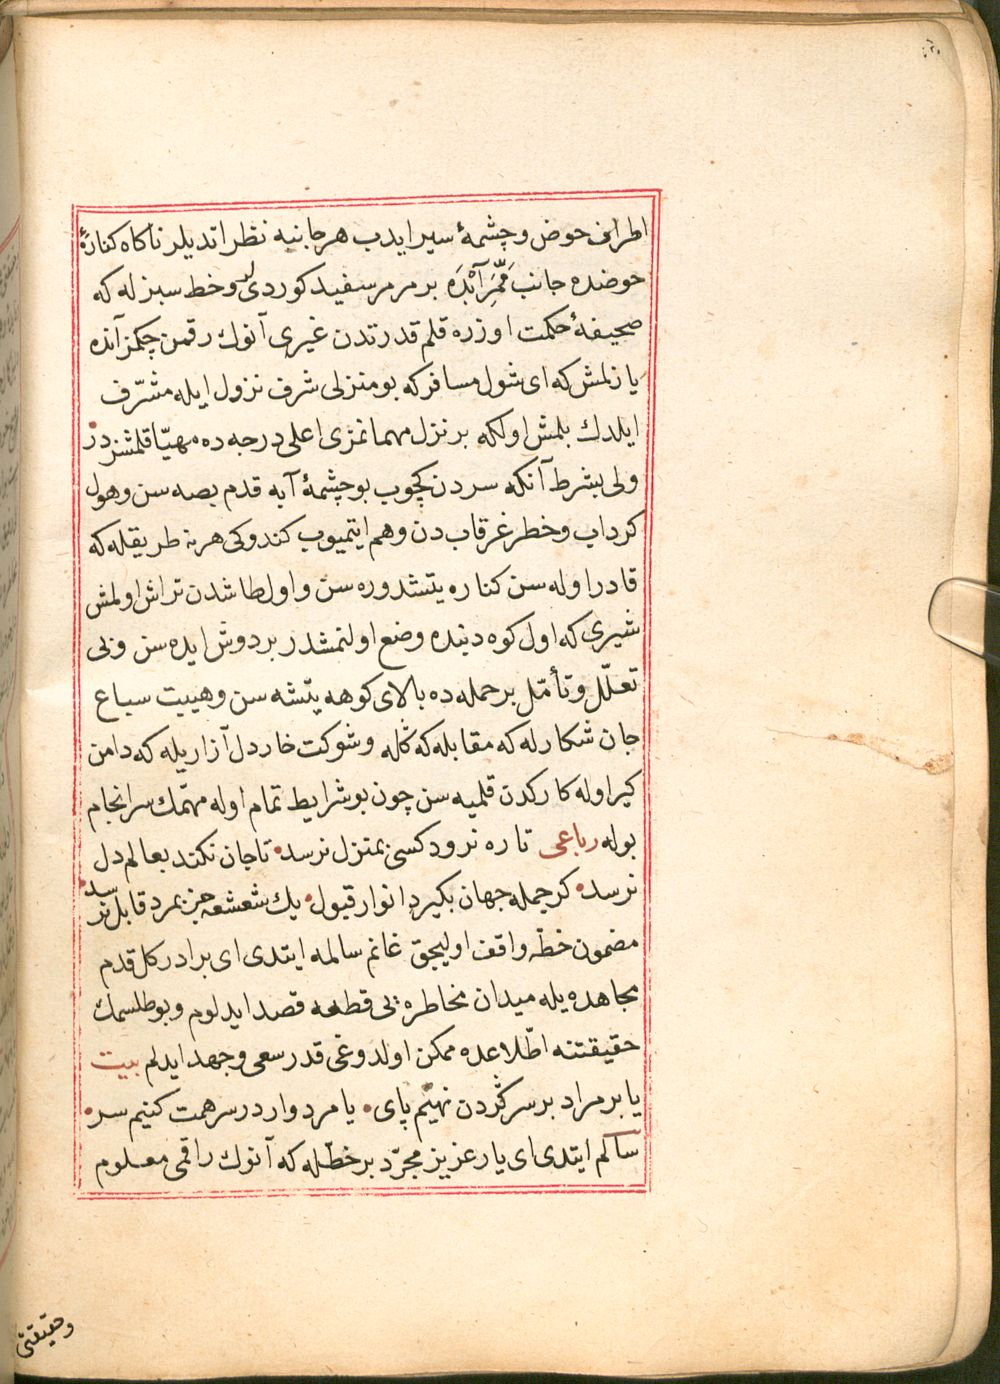 اطرافی حوض و چشمهٔ سیر ایدب هر جانبه نظر اتدیلر ناکاه کنارهٔ
حوضده جانب ممّر آبده بر مرمر سفید کوردیلر و خط سبز له که
صحیفهٔ حکمت اوزره قلم قدرتدن غیری آنوك رقمن چکمز آنده
یازلمش که ای شول مسافر که بو منزلی شرف نزول ایله مشرّف
ایلدك بلمش اول که بر نزل مهمانمزی اعلی درجه ده مهیّا قلمشزدر
ولی بشرط آنکه سردن کچوب بو چشمهٔ آبه قدم بصه سن و هول
کرداب و خطر غرقاب دن وهم ایتمیوب کندوکی هر نه طریقله که
قادر اوله سن کناره یتشدوره سن و اول طاشدن تراش اولمش
شیری که اول کوه دبنده وضع اولنمشدر بر دوش ایده سن و بی
تعلّل و تأمّل بر حمله ده بالای کوهه یتشه سن و هیبت سباع
جان شکار له که مقابله که کله و شوکت خار دل آزار یله که دامن
کیر اوله کارکدن قلمیه سن چون بو شرایط تمام اوله مهمّك سرانجام
بوله رباعی تا ره نرود کسی بمنزل نرسد تا جان نکند بعالم دل
نرسد کر جمله جهان بکیرد انوار قبول یك شعشعه جز بمرد قابل نرسد
مضمون خطّه واقف اولیجق غانم سالمه ایتدی ای برادر کل قدم
مجاهده یله میدان مخاطره یی قطعه قصد ایدلوم و بو طلسمك
حقیقتنه اطّلاعده ممکن اولدوغی قدر سعی و جهد ایدلم بیت
یا بر مراد بر سر کردن نهیم پای یا مردوار در سر همت کنیم سر
سالم ایتدی ای یار عزیز مجرّد بر خطّله که آنوك راقمی معلوم
و حقیقتی